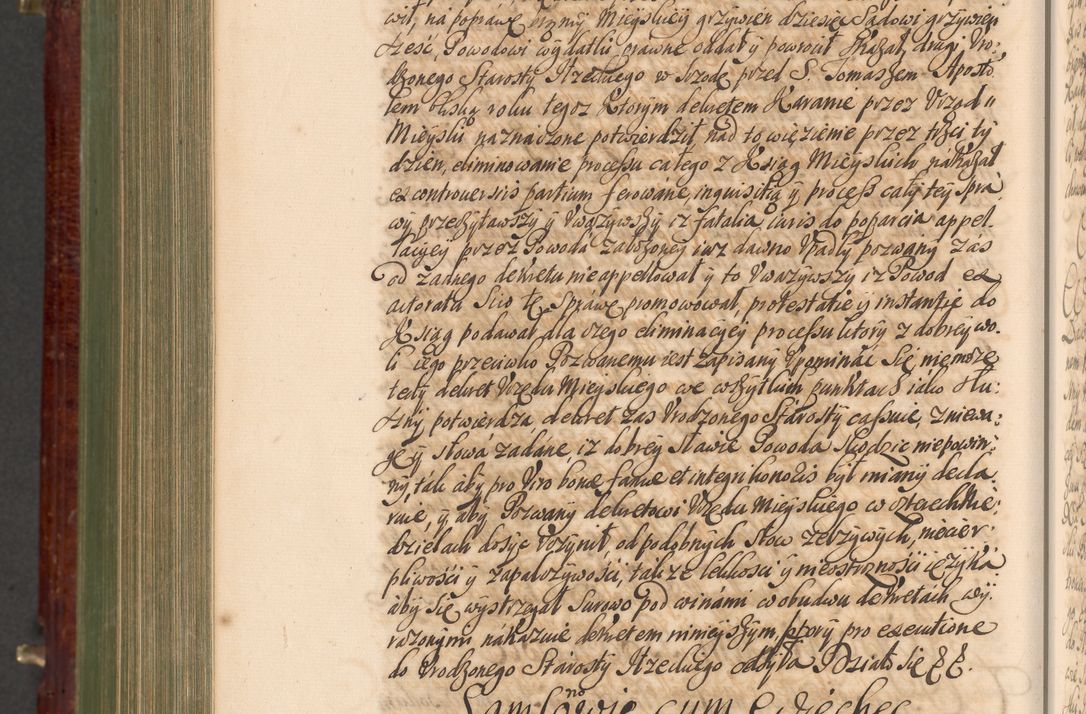 wił, na poprawę Brony Mieyskiey grzywien dziesięć Sądowi grzywien
sześć, Powodowi wydatki prawne oddał y powrocił skazał, drugi Uro
dzonego Starosty Rzeckiego w Srzodę przed S. Tomaszem Aposto
łem blisko roku tegoż ktorym dekretem Karanie przez Urząd
Mieyski naznaczone potwierdził nad to więzienie przez trzci ty
dzien, eliminowanie processu całego z Xsiąg Mieyskich nakazał
ex controversis partium ferowane, inquisitią y process cały tey spra
wy przeczytawszy y Uważywszy iż fatalia iuris do poparcia appel
lacyey przez Powoda założoney iuż dawno Upadły pozwany zaś
od żadnego dekretu nie appellował y to Uważywszy iż Powod ex
actorata Scio tę Sprawę promowował, protestatie y instantie do
Xsiąg podawał dla czego eliminacyey processu ktory z dobrey wo
li iego przeciwko Pozwanemu iest zapisany Upominać się nie może
tedy dekret Urzędu Mieyskiego we wszytkich punktach iako słu:
szny potwierdza dekret zas Urodzonego Starosty cassuie, zniewa:
gę y słowa zadane, iż dobrey sławie Powoda szkodzic niepowin:
ny, tak aby pro Viro bonae famae et integri honoris był miany decla
ruie, y aby Pozwany dekretowi Urzędu Mieyskiego w trzech Nie:
dzielach dosyc Uczynił, od podobnych słow zelzywych, niecier
pliwości y zapalczywości, także lekkosci y nieostrzności ięzyka
aby się wystrzegał Surowo pod winami w obudwu dekretach wy:
rażonymi nakazuie dekretem ninieyszym, ktory pro executione
do Urodzonego Starosty Rzeckiego odsyła Działo się
cum